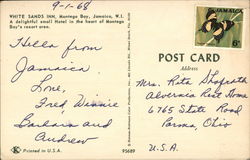 9-1-68
WHITE SANDS INN, Montego Bay, Jamaica, W.I.
A delightful small Hotel in the heart of Montego
Bay's resort area.
JAMAICA
6
Hello from
Jamaica
Love,
Fred, Winnie
Barbara and
Andrew
POST CARD
Address
Mrs. Rita
Alvernia Rest Home
6765 State Road
Parma, Ohio
U.S.A.
K
Printed in U.S.A.
95689